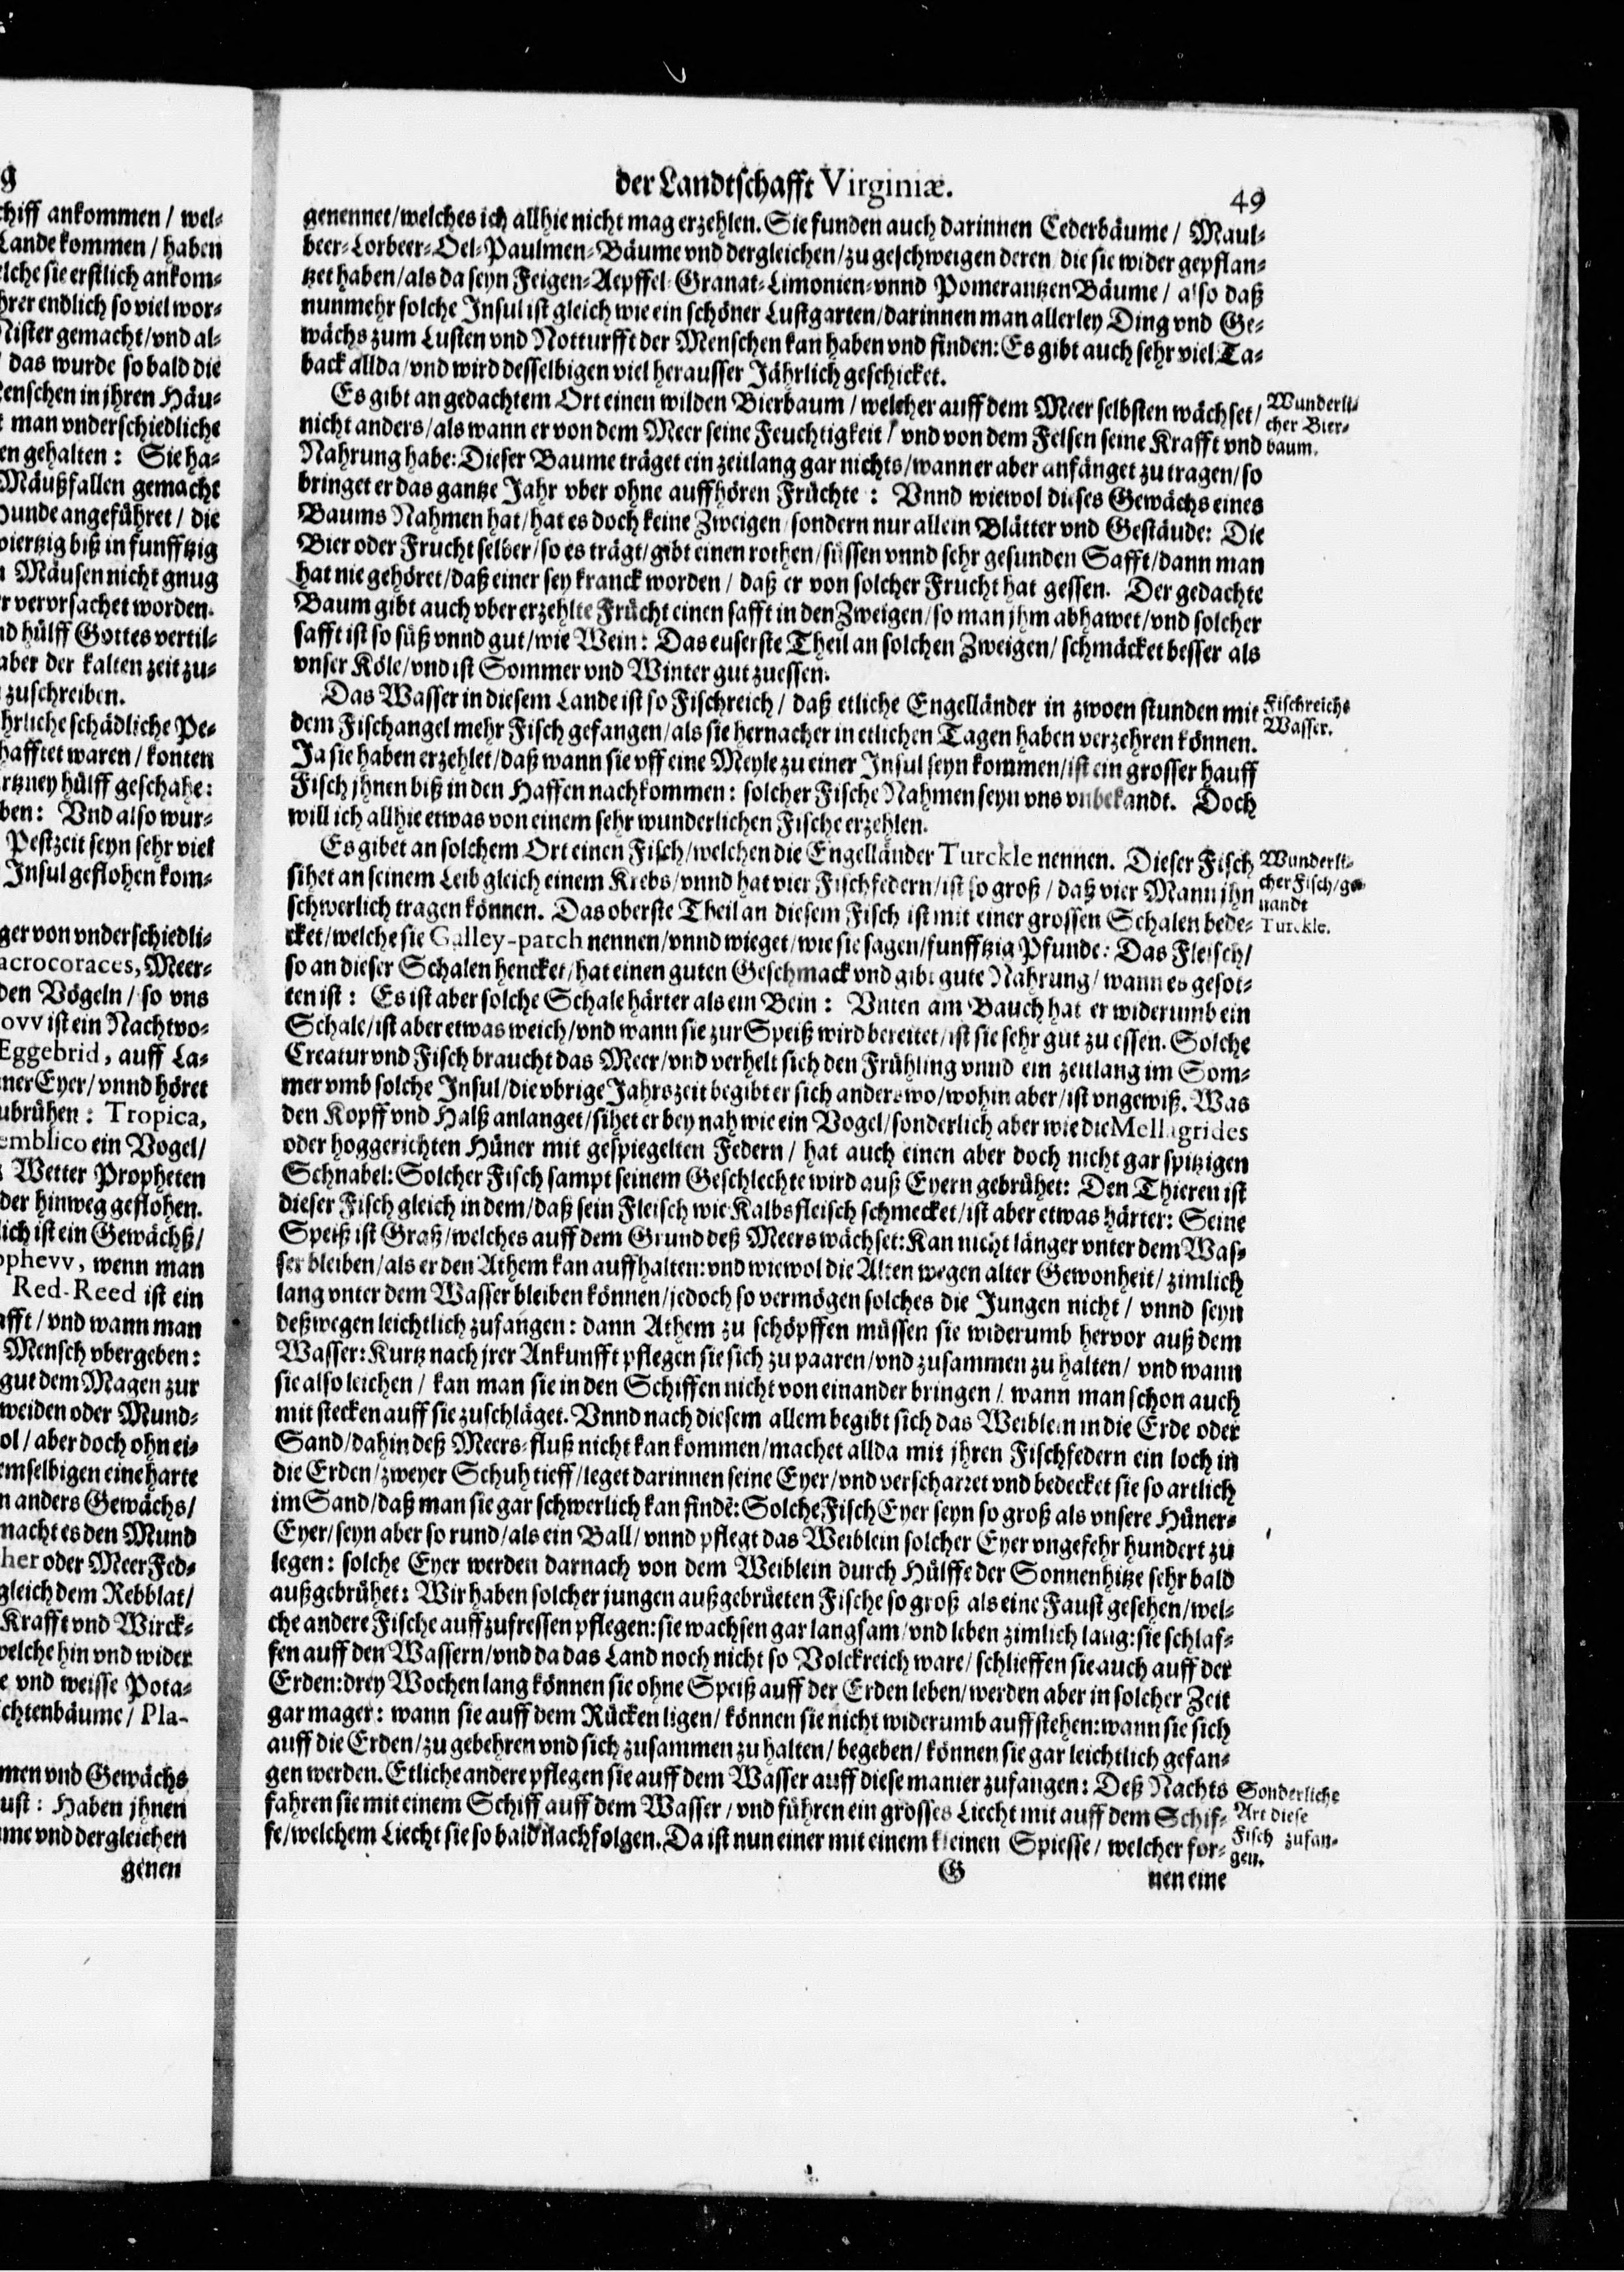 g
chiff ankommen / wel-
Lande kommen / haben
elche sie erstlich ankom-
hrer endlich so viel wor-
Nister gemacht/vnd al-
das wurde so bald die
enschen in jhren Häu-
man vnderschiedliche
en gehalten: Sie ha-
Mäußfallen gemacht
unde angeführet / die
viertzig biß in funfftzig
Mäusen nicht gnug
r vervrsachet worden.
nd hülff Gottes vertil-
aber der kalten zeit zu-
zuschreiben.
hrliche schädliche Pe-
hafftet waren / konten
rtzney hülff geschahe:
ben: Vnd also wur-
Pestzeit seyn sehr viel
Insul geflohen kom-
ger von vnderschiedli-
acrocoraces, Meer-
den Vögeln / so vns
ovv ist ein Nachtvo-
Eggebrid, auff La-
ner Eyer/ vnnd höret
ubrühen: Tropica,
emblico ein Vogel/
Wetter Propheten
der hinweg geflohen.
lich ist ein Gewächß/
ophevv, wenn man
Red-Reed ist ein
afft / vnd wann man
Mensch vbergeben:
gut dem Magen zur
weiden oder Mund-
ol / aber doch ohn ei-
emselbigen eine harte
n anders Gewächs/
macht es den Mund
her oder Meer Fed-
gleich dem Rebblat/
Krafft vnd Wirck-
welche hin vnd wider
e vnd weisse Pota-
ichtenbäume / Pla-
men vnd Gewächs
ust: Haben jhnen
me vnd dergleichen
genen
der Landtschafft Virginiæ.
49
genennet/welches ich allhie nicht mag erzehlen. Sie funden auch darinnen Cederbäume / Maul-
beer-Lorbeer-Oel-Paulmen-Bäume vnd dergleichen/zu geschweigen deren/die sie wider gepflan-
tzet haben/als da seyn Feigen-Aepffel-Granat-Limonien-vnnd Pomerantzen Bäume / also daß
nunmehr solche Insul ist gleich wie ein schöner Lustgarten/darinnen man allerley Ding vnd Ge-
wächs zum Lusten vnd Notturfft der Menschen kan haben vnd finden: Es gibt auch sehr viel Ta-
back allda/vnd wird desselbigen viel herausser Jährlich geschicket.
Es gibt an gedachtem Ort einen wilden Bierbaum / welcher auff dem Meer selbsten wächset/
nicht anders/als wann er von dem Meer seine Feuchtigkeit / vnd von dem Felsen seine Krafft vnd
Nahrung habe: Dieser Baume träget ein zeitlang gar nichts/wann er aber anfänget zu tragen/so
bringet er das gantze Jahr vber ohne auffhören Früchte: Vnnd wiewol dieses Gewächs eines
Baums Nahmen hat/hat es doch keine Zweigen/sondern nur allein Blätter vnd Gestäude: Die
Bier oder Frucht selber/so es trägt/gibt einen rothen/süssen vnnd sehr gesunden Safft/dann man
hat nie gehöret/daß einer sey kranck worden / daß er von solcher Frucht hat gessen. Der gedachte
Baum gibt auch vber erzehlte Frücht einen safft in den Zweigen/so man jhm abhawet/vnd solcher
safft ist so süß vnnd gut/wie Wein: Das euserste Theil an solchen Zweigen/ schmäcket besser als
vnser Köle/vnd ist Sommer vnd Winter gut zuessen.
Wunderli-
cher Bier-
baum.
Das Wasser in diesem Lande ist so Fischreich / daß etliche Engelländer in zwoen stunden mit
dem Fischangel mehr Fisch gefangen/als sie hernacher in etlichen Tagen haben verzehren können.
Ja sie haben erzehlet/daß wann sie vff eine Meyle zu einer Insul seyn kommen/ist ein grosser hauff
Fisch jhnen biß in den Haffen nachkommen: solcher Fische Nahmen seyn vns vnbekandt. Doch
will ich allhie etwas von einem sehr wunderlichen Fische erzehlen.
Fischreiche
Wasser.
Es gibet an solchem Ort einen Fisch/welchen die Engelländer Turckle nennen. Dieser Fisch
sihet an seinem Leib gleich einem Krebs/vnnd hat vier Fischfedern/ist so groß / daß vier Mann jhn
schwerlich tragen können. Das oberste Theil an diesem Fisch ist mit einer grossen Schalen bede-
cket/welche sie Galley-patch nennen/vnnd wieget/wie sie sagen/funfftzig Pfunde: Das Fleisch/
so an dieser Schalen hencket/hat einen guten Geschmack vnd gibt gute Nahrung/wann es gesot-
ten ist: Es ist aber solche Schale härter als ein Bein: Vnten am Bauch hat er widerumb ein
Schale/ist aber etwas weich/vnd wann sie zur Speiß wird bereitet/ist sie sehr gut zu essen. Solche
Creatur vnd Fisch braucht das Meer/vnd verhelt sich den Frühling vnnd ein zeitlang im Som-
mer vmb solche Insul/die vbrige Jahrszeit begibt er sich anderswo/wohin aber/ist vngewiß. Was
den Kopff vnd Halß anlanget/sihet er bey nah wie ein Vogel/sonderlich aber wie die Mellagrides
oder hoggerichten Hüner mit gespiegelten Federn / hat auch einen aber doch nicht gar spitzigen
Schnabel: Solcher Fisch sampt seinem Geschlechte wird auß Eyern gebrühet: Den Thieren ist
dieser Fisch gleich in dem/daß sein Fleisch wie Kalbsfleisch schmecket/ist aber etwas härter: Seine
Speiß ist Graß/welches auff dem Grund deß Meers wächset: Kan nicht länger vnter dem Was-
ser bleiben/als er den Athem kan auffhalten: vnd wiewol die Alten wegen alter Gewonheit/zimlich
lang vnter dem Wasser bleiben können/jedoch so vermögen solches die Jungen nicht / vnnd seyn
deßwegen leichtlich zufangen: dann Athem zu schöpffen müssen sie widerumb hervor auß dem
Wasser: Kurtz nach jrer Ankunfft pflegen sie sich zu paaren/vnd zusammen zu halten/ vnd wann
sie also leichen / kan man sie in den Schiffen nicht von einander bringen / wann man schon auch
mit stecken auff sie zuschläget. Vnnd nach diesem allem begibt sich das Weiblein in die Erde oder
Sand/dahin deß Meers-fluß nicht kan kommen/machet allda mit jhren Fischfedern ein loch in
die Erden/zweyer Schuh tieff/leget darinnen seine Eyer/vnd verscharret vnd bedecket sie so artlich
im Sand/daß man sie gar schwerlich kan findẽ: Solche Fisch Eyer seyn so groß als vnsere Hüner-
Eyer/seyn aber so rund/als ein Ball/vnnd pflegt das Weiblein solcher Eyer vngefehr hundert zu
legen: solche Eyer werden darnach von dem Weiblein durch Hülffe der Sonnenhitze sehr bald
außgebrühet: Wir haben solcher jungen außgebrüeten Fische so groß als eine Faust gesehen/wel-
che andere Fische auffzufressen pflegen: sie wachsen gar langsam/vnd leben zimlich lang: sie schlaf-
fen auff den Wassern/vnd da das Land noch nicht so Volckreich ware/ schlieffen sie auch auff der
Erden: drey Wochen lang können sie ohne Speiß auff der Erden leben/werden aber in solcher Zeit
gar mager: wann sie auff dem Rücken ligen/ können sie nicht widerumb auffstehen: wann sie sich
auff die Erden/zu gebehren vnd sich zusammen zu halten/ begeben/ können sie gar leichtlich gefan-
gen werden. Etliche andere pflegen sie auff dem Wasser auff diese manier zufangen: Deß Nachts
fahren sie mit einem Schiff auff dem Wasser / vnd führen ein grosses Liecht mit auff dem Schif-
fe/welchem Liecht sie so bald nachfolgen. Da ist nun einer mit einem kleinen Spiesse / welcher for-
Wunderli-
cher Fisch/ge-
nandt
Turckle.
Sonderliche
Art diese
Fisch zufan-
gen.
G
nen eine